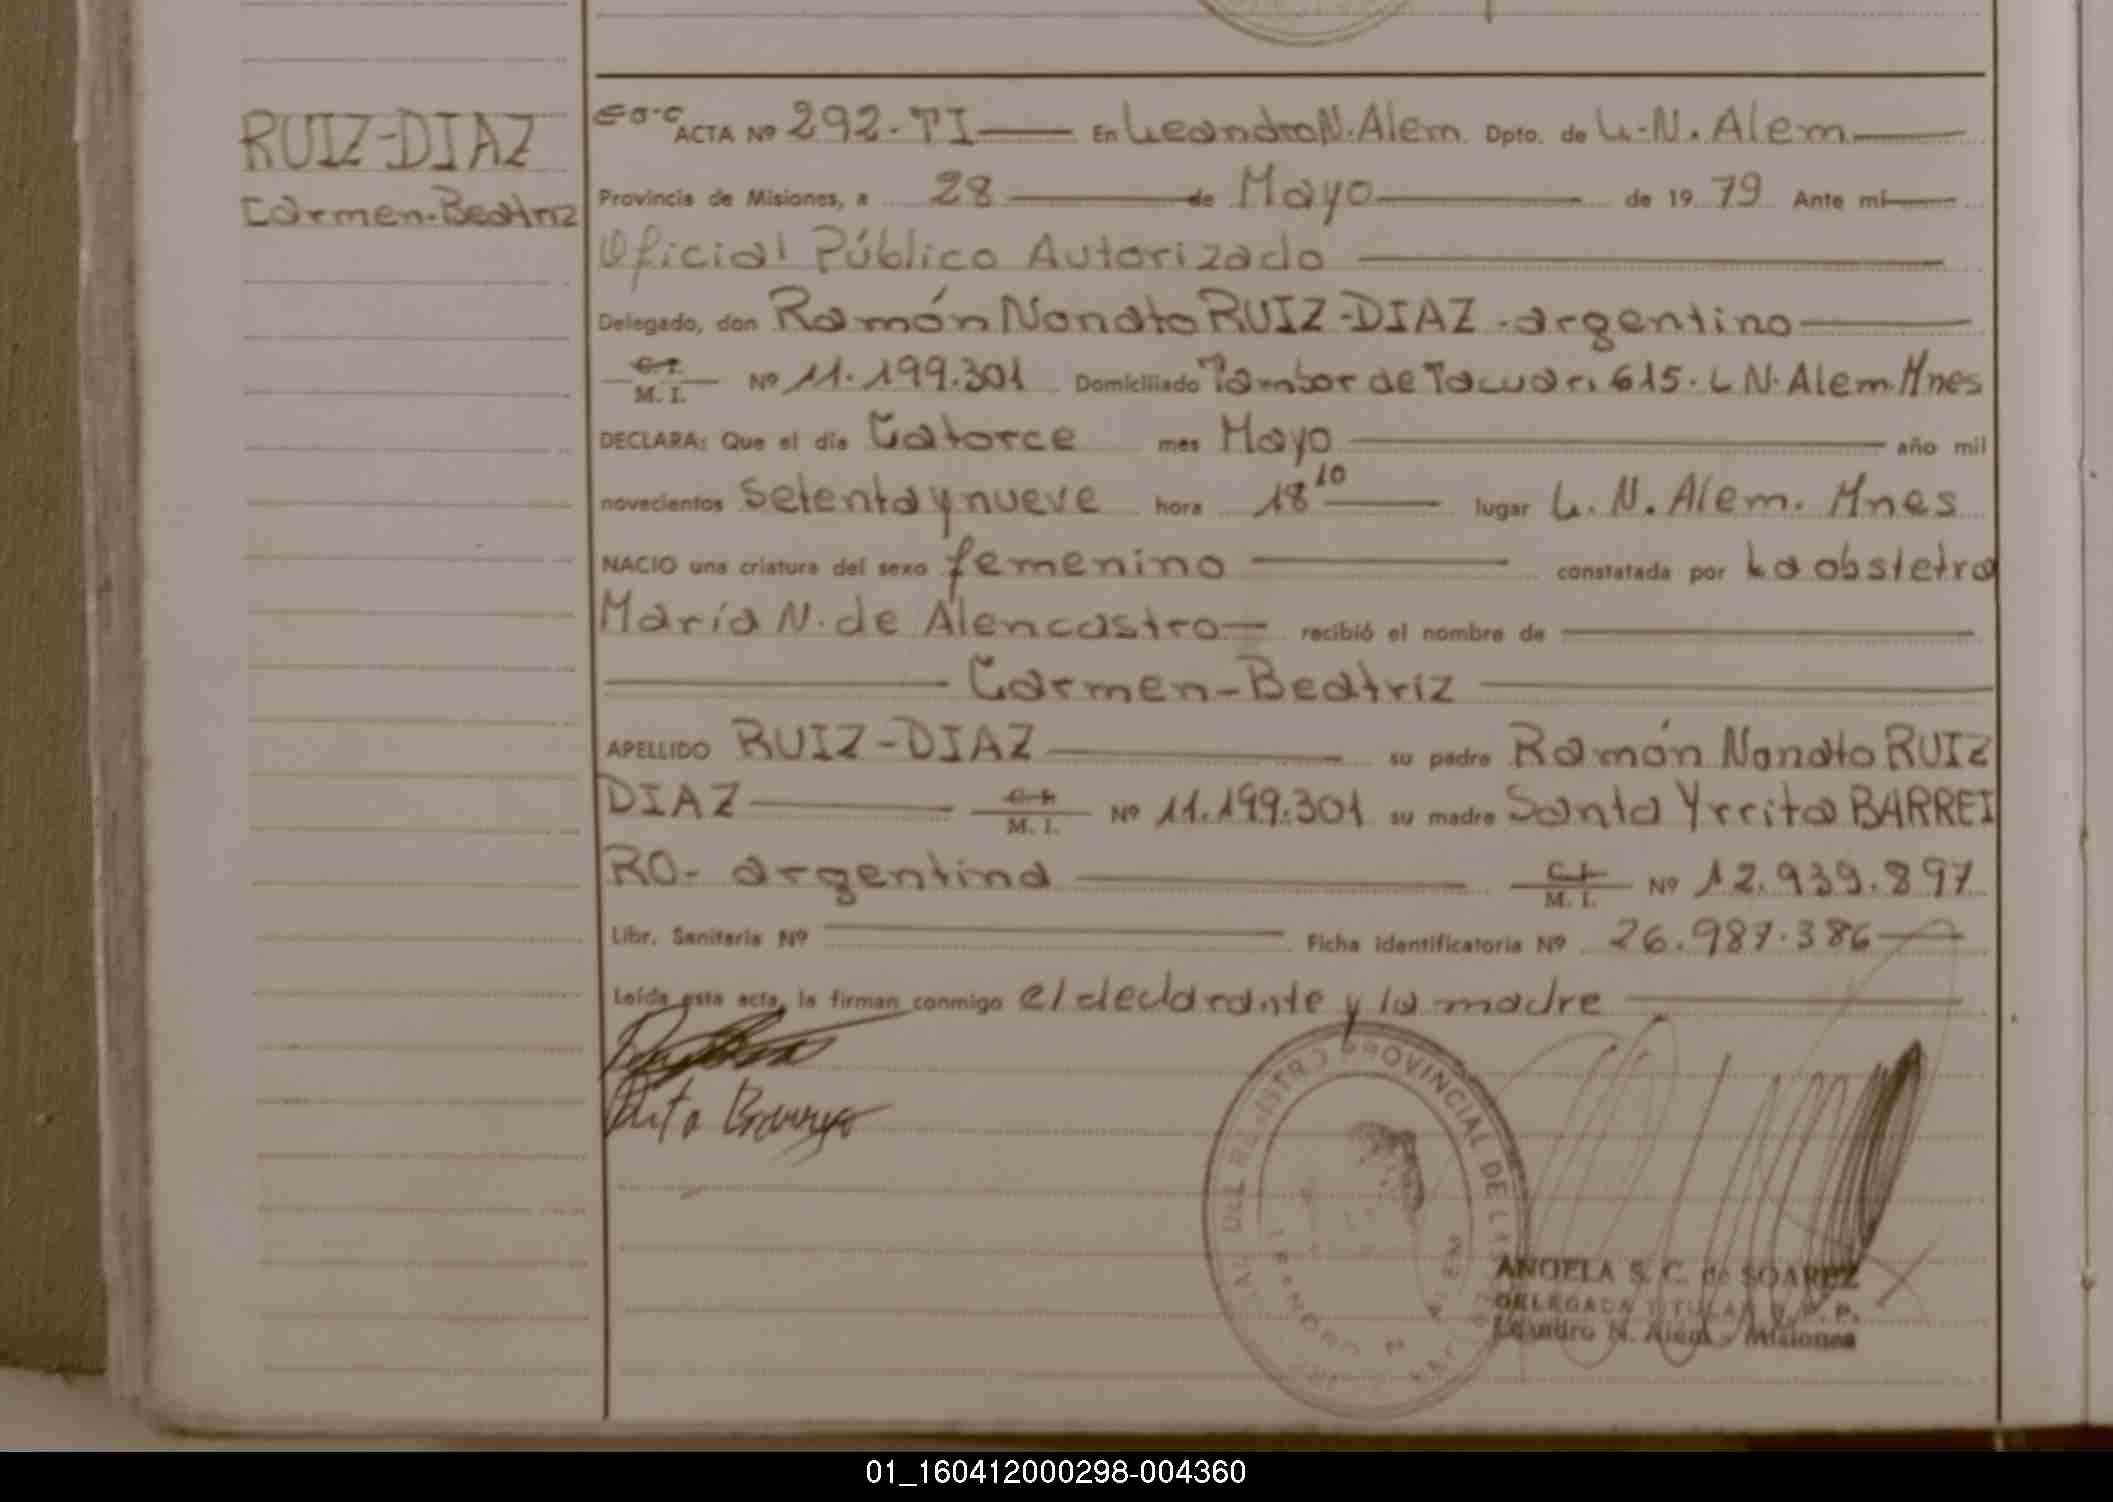 RUIZ-DIAZ
Carmen-Beatriz
ACTA Nº 292-TI En Leandro N. Alem Dpto. de L.N. Alem
Provincia de Misiones, a 28 de Mayo de 1979 Ante mi
Oficial Público Autorizado
Delegado, don Ramón Nonato RUIZ-DIAZ - argentino
C.I. M. I. Nº 11.199.301 Domiciliado Tambor de Tacuari 615. L N. Alem. Mnes
DECLARA: Que el día Catorce mes Mayo año mil
novecientos setenta y nueve hora 18 10 lugar L. N. Alem. Mnes
NACIO una criatura del sexo femenino constatada por La obstetra
María N. de Alencastro recibió el nombre de
Carmen-Beatriz
APELLIDO RUIZ-DIAZ su padre Ramón Nonato RUIZ
DIAZ C.I. M. I. Nº 11.199.301 su madre Santa Yrrita BARREI
RO- argentina C.I. M. I. Nº 12.939.897
Libr. Sanitaria Nº Ficha identificatoria Nº 26.987.386
Leída esta acta, la firman conmigo el declarante y la madre
PROVINCIAL DE LAS
LEANDRO N ALEM
ANGELA S. C. de SOAREZ
DELEGADA TITULAR R. P. P.
Leandro N. Alem - Misiones
01_160412000298-004360